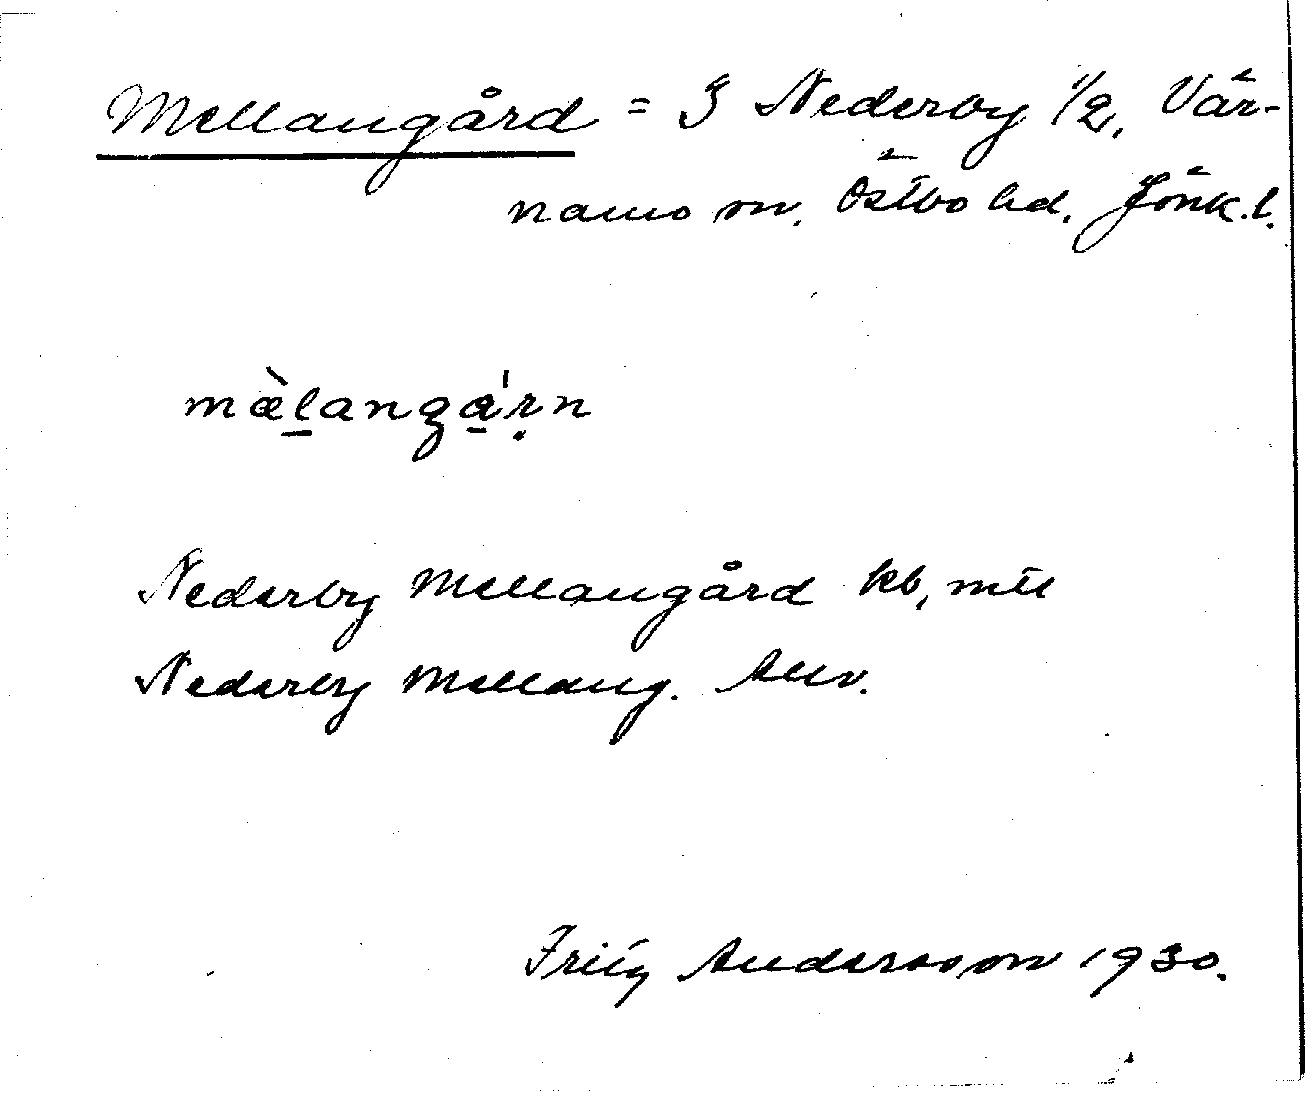 Mellangård = I Nederby 1/2, Vär-
namo sn. Östbo hd. Jönk.l.
mæ̀l̠anga̠'ṛn
Nederby Mellangård kb, mtl
Nederby Mellang. Allv.
Fritz Andersson 1930.